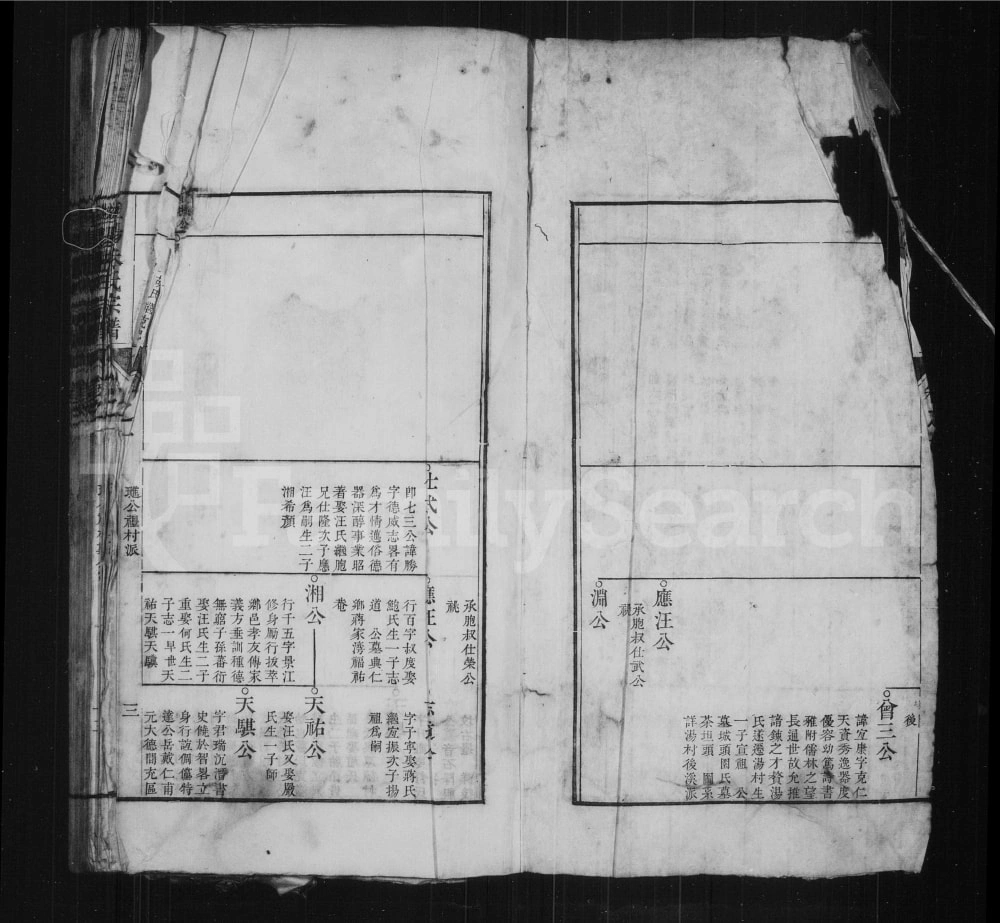 後
曾三公
諱宣康字克仁
天資秀逸器度
優容幼篤詩書
雅附儒林之望
長通世故允推
諳鍊之才贅湯
氏遂遷湯村生
一子宣祖 公
墓城頭園氏墓
茶坦頭 圖系
詳湯村後淡派
應汪公
承胞叔仕武公
淵公
承胞叔仕榮公
祧
仕武公
卽七三公諱勝
字德威志畧有
為才情邁俗德
器深醇事業昭
著娶汪氏繼胞
兄仕隆次子應
汪為嗣生二子
湘希顏
應汪公
行百字叔度娶
鮑氏生一子志
道 公墓典仁
鄉蔣家灣福祐
巷
字子寧娶蔣氏
繼宣振次子揚
祖為嗣
湘公
行千五字景江
修身勵行拔萃
鄉邑孝友傳家
義方垂訓種德
無窮子孫蕃衍
娶汪氏生二子
重娶何氏生二
子志一早世天
祐天騏天驥
天祐公
娶汪氏又娶嚴
氏生一子師
天騏公
字君瑞沉潛書
史饒於智畧立
身行誼倜儻特
達公岳戴仁甫
元大德間充區
氏宗譜
三
FamilySearch